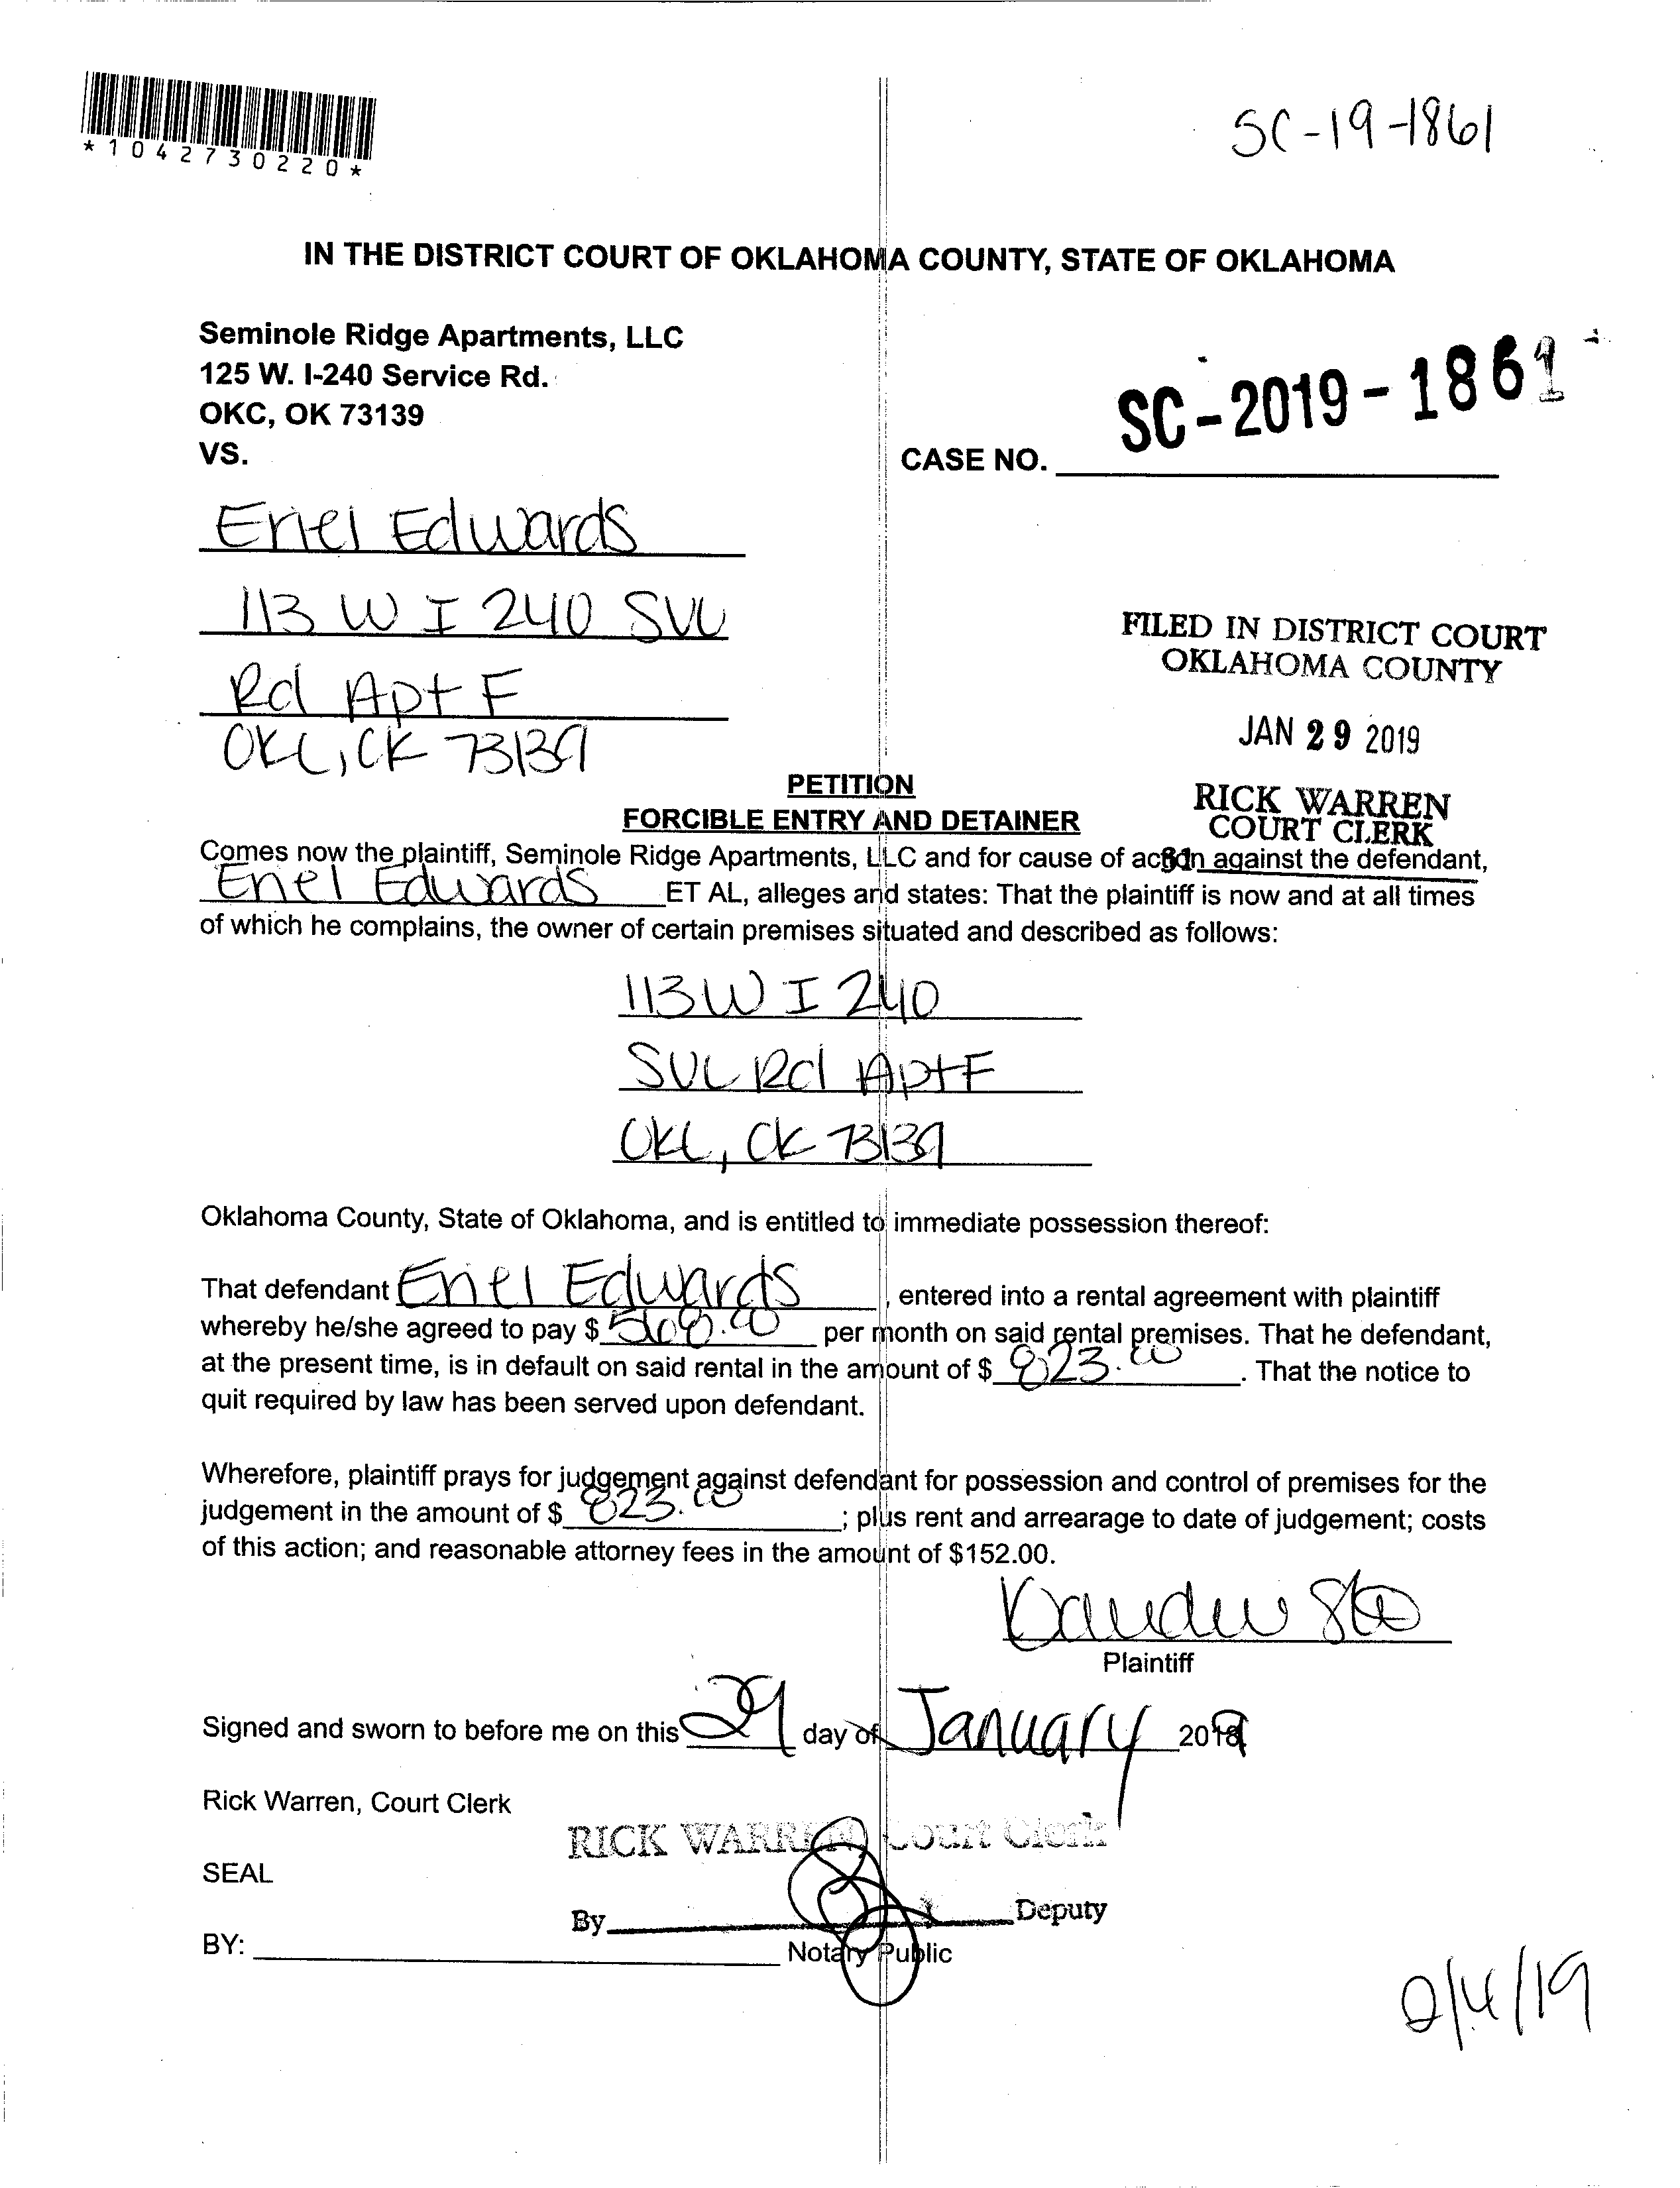 *1042730220*
SC-19-1861
IN THE DISTRICT COURT OF OKLAHOMA COUNTY, STATE OF OKLAHOMA
Seminole Ridge Apartments, LLC
125 W. I-240 Service Rd.
OKC, OK 73139
VS.
CASE NO. SC-2019-1861
Eriel Edwards
113 W I 240 SVC
Rd Apt F
OKC, OK 73139
FILED IN DISTRICT COURT
OKLAHOMA COUNTY
JAN 29 2019
RICK WARREN
COURT CLERK
PETITION
FORCIBLE ENTRY AND DETAINER
Comes now the plaintiff, Seminole Ridge Apartments, LLC and for cause of action against the defendant,
Eriel Edwards ET AL, alleges and states: That the plaintiff is now and at all times
of which he complains, the owner of certain premises situated and described as follows:
113 W I 240
SVC Rd Apt F
OKC, OK 73139
Oklahoma County, State of Oklahoma, and is entitled to immediate possession thereof:
That defendant Eriel Edwards, entered into a rental agreement with plaintiff
whereby he/she agreed to pay $ per month on said rental premises. That he defendant,
at the present time, is in default on said rental in the amount of $ 823.00. That the notice to
quit required by law has been served upon defendant.
Wherefore, plaintiff prays for judgement against defendant for possession and control of premises for the
judgement in the amount of $ 823.00; plus rent and arrearage to date of judgement; costs
of this action; and reasonable attorney fees in the amount of $152.00.
Plaintiff
Signed and sworn to before me on this 29 day of January 2019
Rick Warren, Court Clerk
RICK WARREN Court Clerk
SEAL
By Deputy
BY: Notary Public
2/4/19